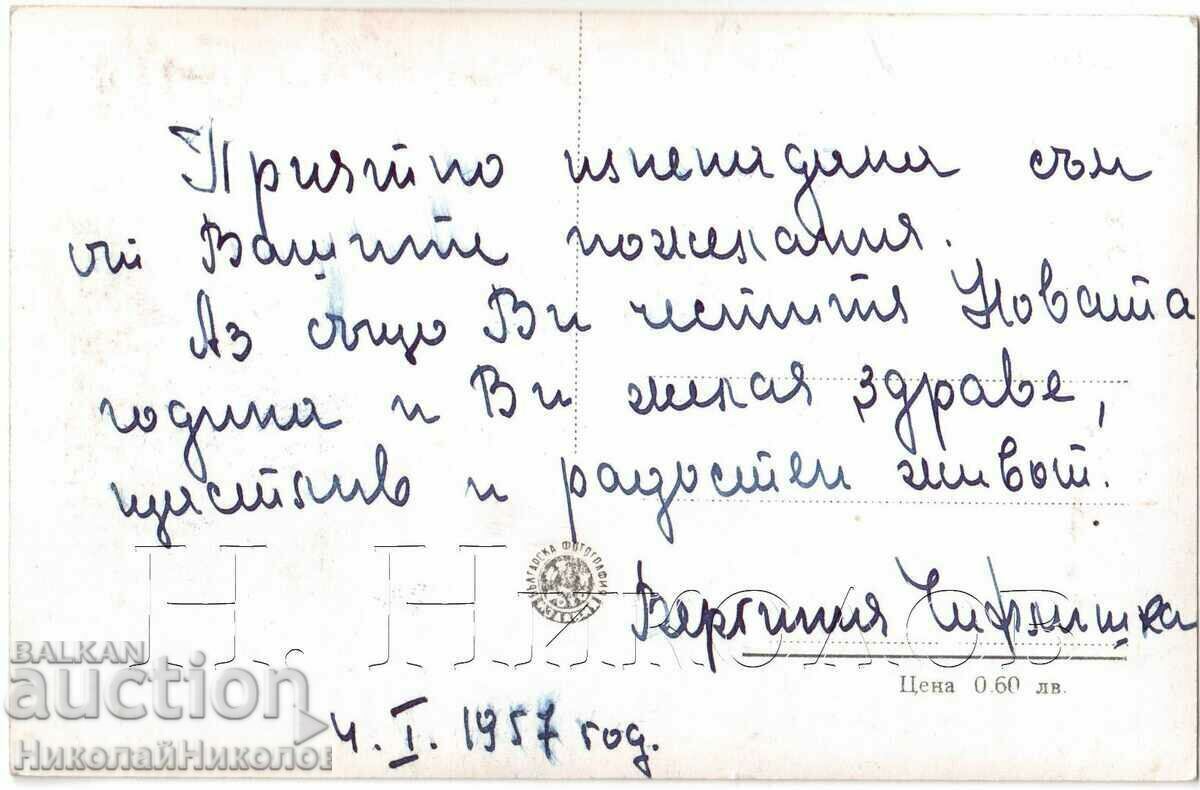 Приятно изненадана съм
от Вашите пожелания.
Аз също Ви честитя Новата
година и Ви желая здраве,
щастлив и радостен живот.
БЪЛГАРСКА ФОТОГРАФИЯ
Н. Николов
Вергиния
Цена 0.60 лв.
BALKAN
auction
НиколайНиколов
4. I. 1957 год.